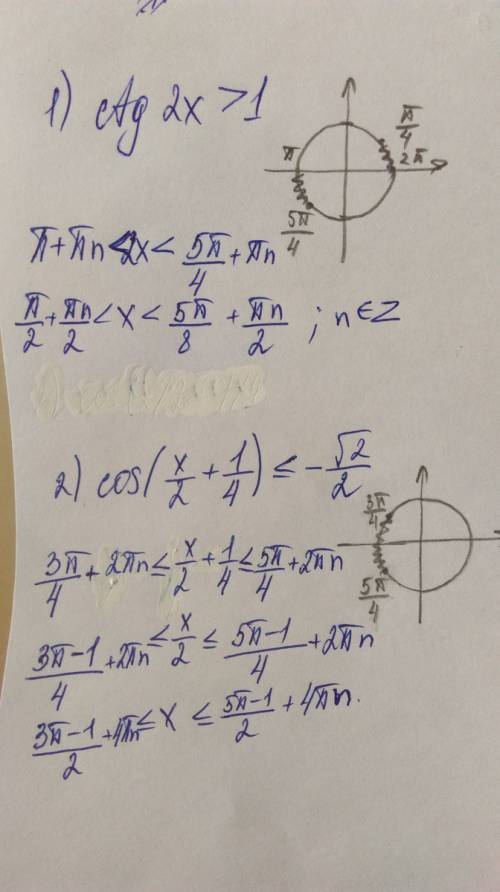 1) ctg 2x > 1
π/4
π 2π
5π/4
π + πn < 2x < 5π/4 + πn
π/2 + πn/2 < x < 5π/8 + πn/2 ; n ∈ Z
2) cos(x/2 + 1/4) ≤ -√2/2
3π/4
5π/4
3π/4 + 2πn ≤ x/2 + 1/4 ≤ 5π/4 + 2πn
3π-1/4 + 2πn ≤ x/2 ≤ 5π-1/4 + 2πn
3π-1/2 + 4πn ≤ x ≤ 5π-1/2 + 4πn.